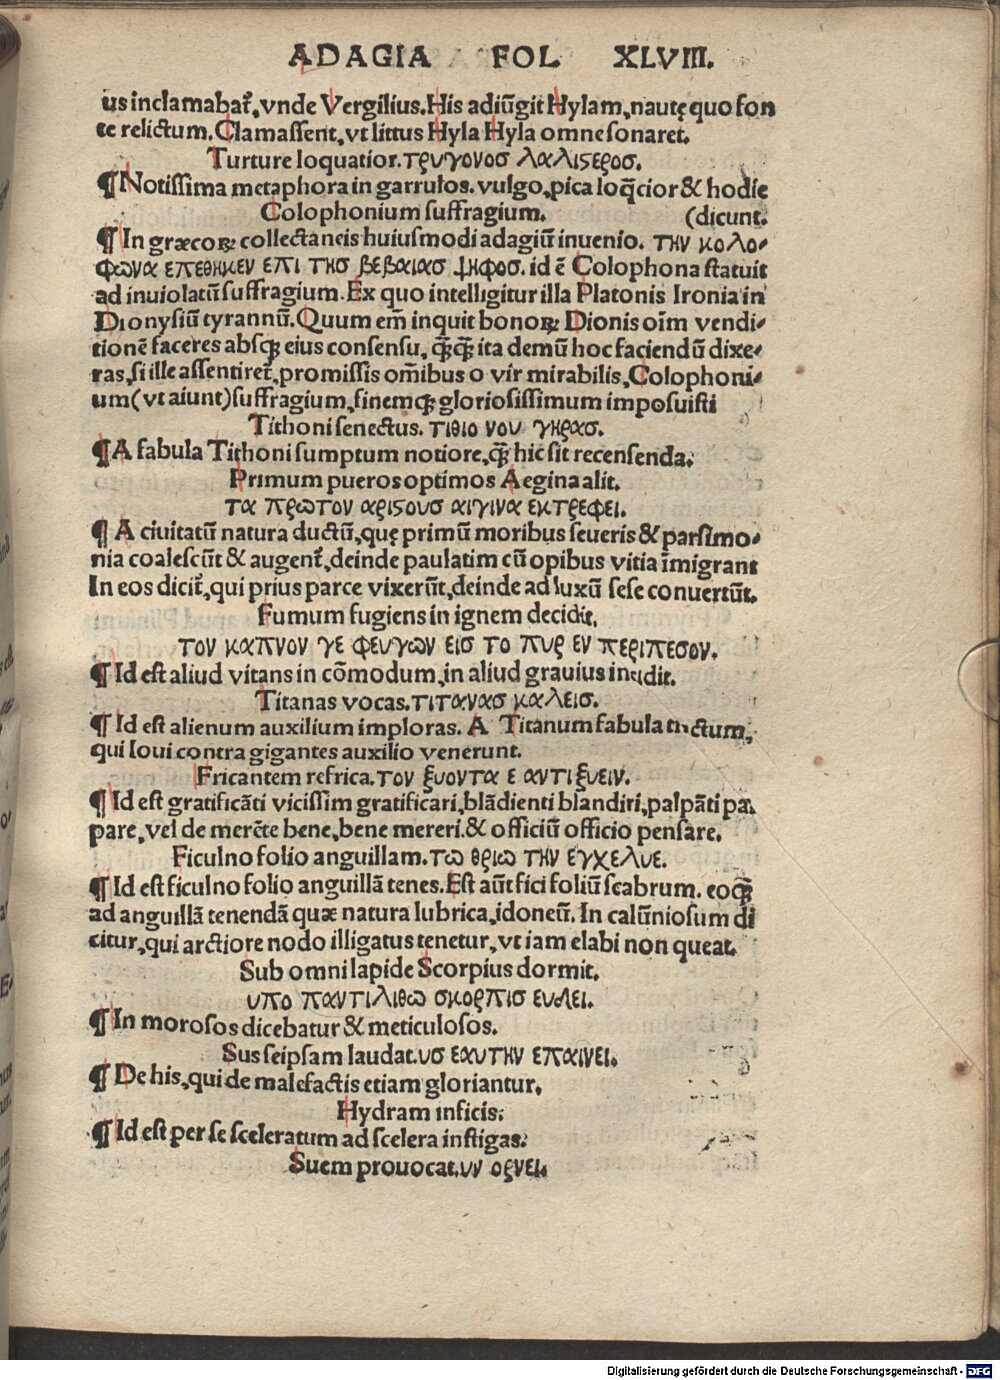 ADAGIA FOL XLVIII.
us inclamabat᷑, vnde Vergilius. His adiūgit Hylam, nautę quo fon
te relictum. Clamassent, vt littus Hyla Hyla omne sonaret.
Turture loquatior. τρυγονοσ λαλιςεροσ.
¶ Notissima metaphora in garrulos. vulgo, pica loq̄cior & hodie
Colophonium suffragium. (dicunt.
¶ In græcoꝝ collectaneis huiusmodi adagiū inuenio. την κολο-
φωνα επεθηκεν επι τησ βεβαιασ ψηφοσ. id ē Colophona statuit
ad inuiolatū suffragium. Ex quo intelligitur illa Platonis Ironia in
Dionysiū tyrannū. Quum em̄ inquit bonoꝝ Dionis oīm vendi-
tionē faceres absqꝫ eius consensu, q̄q̄ ita demū hoc faciendū dixe-
ras, si ille assentiret᷑, promissis om̄ibus o vir mirabilis, Colophoni-
um (vt aiunt) suffragium, finemqꝫ gloriosissimum imposuisti
Tithoni senectus. τιθιο νου γηρασ.
¶ A fabula Tithoni sumptum notiore, q̄ hic sit recensenda.
Primum pueros optimos Aegina alit.
τα πρωτον αριςουσ αιγινα εκτρεφει.
¶ A ciuitatū natura ductū, quę primū moribus seueris & parsimo-
nia coalescūt & augent᷑, deinde paulatim cū opibus vitia īmigrant
In eos dicit᷑, qui prius parce vixerūt, deinde ad luxū sese conuertūt.
Fumum fugiens in ignem decidit.
τον καπνον γε φευγων εισ το πυρ εν περιπεσον.
¶ Id est aliud vitans in cōmodum, in aliud grauius incidit.
Titanas vocas. τιτανασ καλεισ.
¶ Id est alienum auxilium imploras. A Titanum fabula tractum,
qui Ioui contra gigantes auxilio venerunt.
Fricantem refrica. τον ξυοντα ε αντιξυειν.
¶ Id est gratificāti vicissim gratificari, blādienti blandiri, palpāti pa.
pare, vel de merēte bene, bene mereri. & officiū officio pensare.
Ficulno folio anguillam. τω θριω την εγχελυε.
¶ Id est ficulno folio anguillā tenes. Est aūt fici foliū scabrum. eoqꝫ
ad anguillā tenendā quæ natura lubrica, idoneū. In calūniosum di
citur, qui arctiore nodo illigatus tenetur, vt iam elabi non queat.
Sub omni lapide Scorpius dormit.
υπο παντιλιθω σκορπισ ευδει.
¶ In morosos dicebatur & meticulosos.
Sus seipsam laudat. υσ εαυτην επαινει.
¶ De his, qui de malefactis etiam gloriantur.
Hydram inficis.
¶ Id est per se sceleratum ad scelera instigas.
Suem prouocat. υν ορνει.
Digitalisierung gefördert durch die Deutsche Forschungsgemeinschaft - DFG